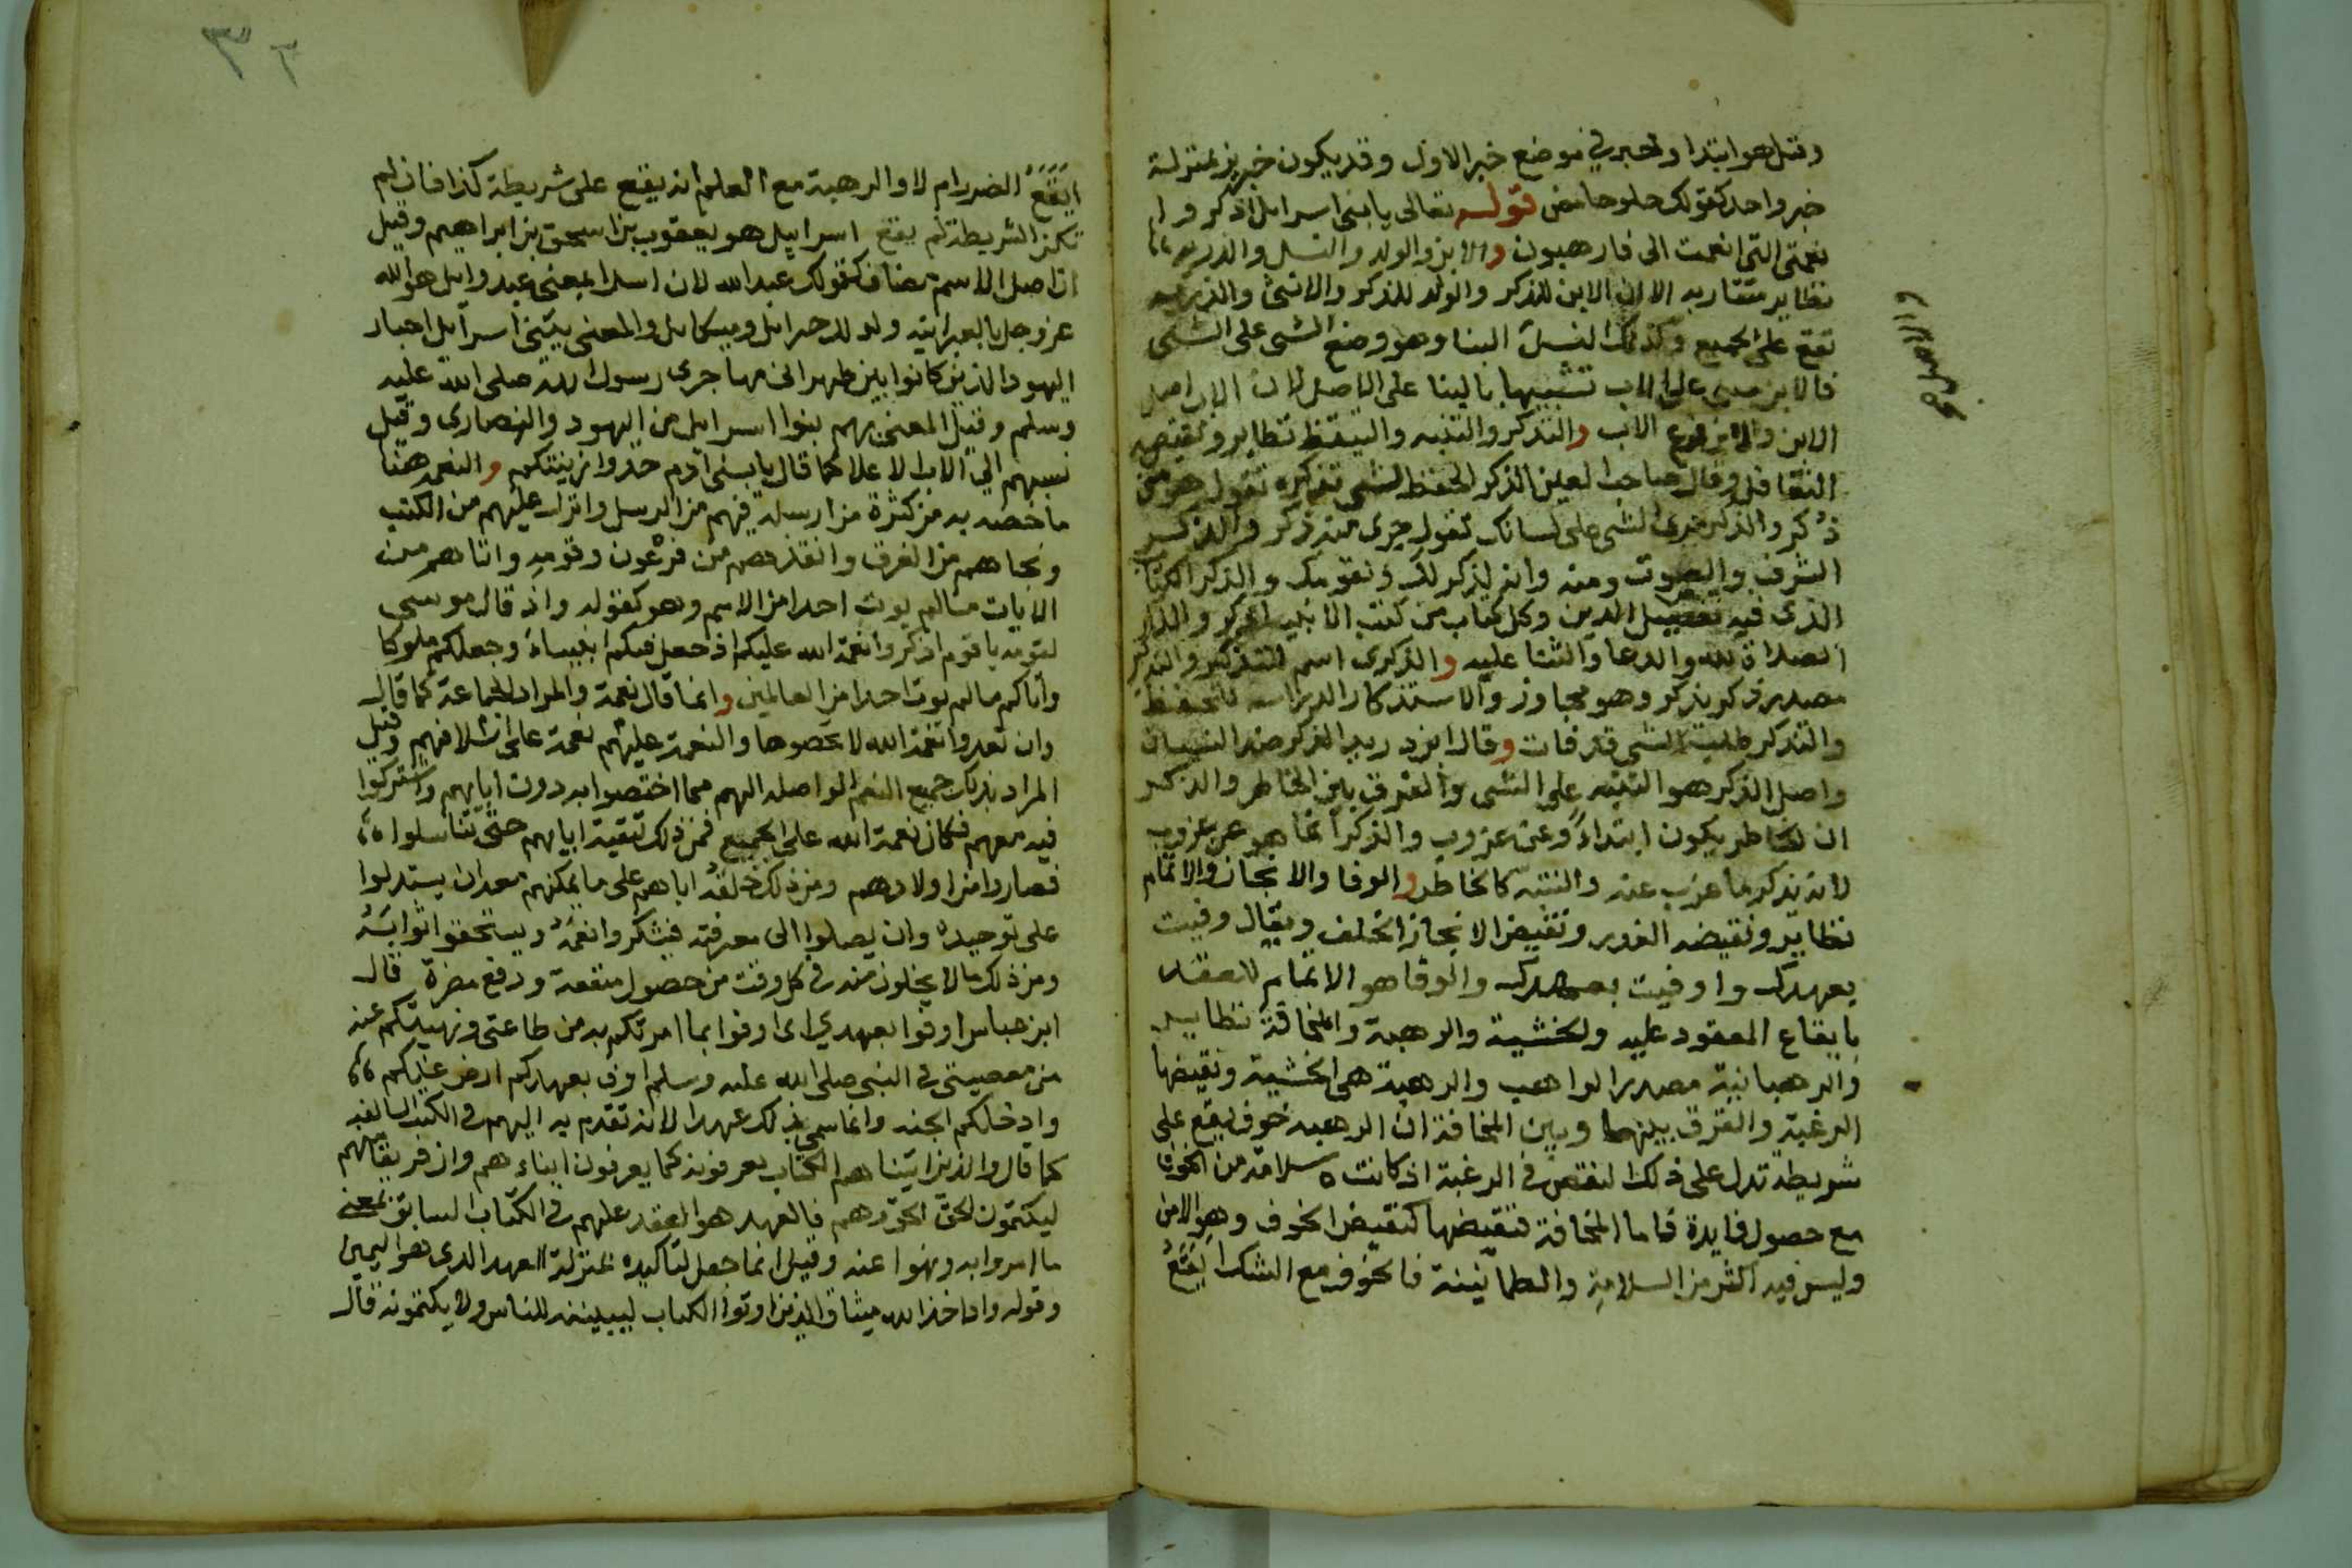 وقيل هو ابتدا والخبر في موضع خبر الاول وقد يكون خبرين بمنزلة
خبر واحد كقولك حلو حامض قوله تعالى يا بنى اسرايل اذكروا
نعمتى التى انعمت الى فارهبون والابن والولد والنسل والذريه
نظاير متقاربه الا ان الابن للذكر والولد للذكر والانثى والذريه
تقع على الجميع وكذلك النسل البنا وهو وضع الشى على الشى
فالابن مبنى على الاب تشبيها بالبنا على الاصل لان الاب اصل
والاصل
الابن والابن فرع الاب والتذكر والتنبه والتيقظ نظاير ونقيضه
التغافل وقال صاحب العين الذكر الحفظ للشى تذكره تقول هو من
ذكر والذكر جرى الشى على لسانك تقول جرى منه ذكر والذكر
الشرف والصوت ومنه وانه لذكر لك ولقومك والذكر الكتاب
الذى فيه تفصيل الدين وكل كتاب من كتب الانبيا ذكر والذكر
الصلاة لله والدعا والثنا عليه والذكرى اسم للتذكير والذكر
مصدر ذكر يذكر وهو مجاوز والاستذكار الدراسه للحفظ
والتذكر طلبة الشى قد فات وقال ابن دريد الذكر ضد النسيان
واصل الذكر هو التنبه على الشى والفرق بين الخاطر والذكر
ان الخاطر يكون ابتداءً وعن عزوب والذكر انما هو عن عزوب
لانه يذكر ما عزب عنه والتنبه كالخاطر والوفا والانجاز والاتمام
نظاير ونقيضه الغدر ونقيض الانجاز الخلف ويقال وفيت
بعهدك واوفيت بعهدك والوفا هو الاتمام للعقد
بايقاع المعقود عليه والخشية والرهبة والمخافة نظاير
والرهبانية مصدر الراهب والرهبة هى الخشية ونقيضها
الرغبة والفرق بينهما وبين المخافة ان الرهبه خوف يقع على
شريطه تدل على ذلك لنقض فى الرغبة اذ كانت سلامة من الخوف
مع حصول فايدة فاما المخافة فنقيضها كنقيض الخوف وهو الامن
وليس فيه اكثر من السلامة والطمانينة فالخوف مع الشك ايقع
٣٢
ايقع الضرر ام لا والرهبة مع العلم انه يقع على شريطة كذا فان لم
تكن الشريطة لم يقع اسراييل هو يعقوب بن اسحق بن ابراهيم وقيل
ان اصل الاسم مضاف كقولك عبد الله لان اسرا بمعنى عبد وايل هو الله
عز وجل بالعبرانيه وله لدجبرايل وميكايل والمعنى ببنى اسرآيل احبار
اليهود الذين كانوا بين ظهرانى مهاجرى رسول الله صلى الله عليه
وسلم وقيل المعنى بهم بنوا اسرايل من اليهود والنصارى وقيل
نسبهم الى الاب الاعلا كما قال يا بنى آدم خذوا زينتكم والنعمه هنا
ما خصه به من كثرة من ارسله فيهم من الرسل وانزل عليهم من الكتب
ونجاهم من الغرق وانقذهم من فرعون وقومه واتاهم من
الايات ما لم يوت احدا من الامم وهو كقوله واذ قال موسى
لقومه يا قوم اذكروا نعمة الله عليكم اذ جعل فيكم انبياء وجعلكم ملوكا
واتاكم ما لم يوت احدا من العالمين وانما قال نعمة والمراد الجماعة كما قال
وان تعدوا نعمة الله لا تحصوها والنعمة عليهم نعمة على اسلافهم وقيل
المراد بذلك جميع النعم الواصله اليهم مما اختصوا به دون ابايهم واشتركوا
فيه معهم فكان نعمة الله على الجميع فمن ذلك تبقية ابايهم حتى تناسلوا
فصاروا من اولادهم ومن ذلك خلقه اياهم على ما يمكنهم معه ان يستدلوا
على توحيده وان يصلوا الى معرفته فيشكروا نعمَهُ ويستحقوا ثوابَهُ
ومن ذلك ما لا يخلون منه فى كل وقت من حصول منفعة ودفع مضرة قال
ابن عباس اوفوا بعهدى اى اوفوا بما امرتكم به من طاعتى ونهيتكم عنه
من معصيتى فى النبى صلى الله عليه وسلم اوف بعهدكم ارض عنكم
وادخلكم الجنه وانما سمى ذلك عهدا لانه تقدم به اليهم فى الكتب السالفه
كما قال والذين اتيناهم الكتاب يعرفونه كما يعرفون ابناءهم وان فريقا منهم
ليكتمون الحق فالعهد هو العقد عليهم فى الكتاب السابق بمعنى
ما امروا به ونهوا عنه وقيل انما جعل لتاكيده بمنزلة العهد الذى هو اليمين
وقوله واذ اخذ الله ميثاق الذين اوتوا الكتاب ليبيننه للناس ولا يكتمونه قال